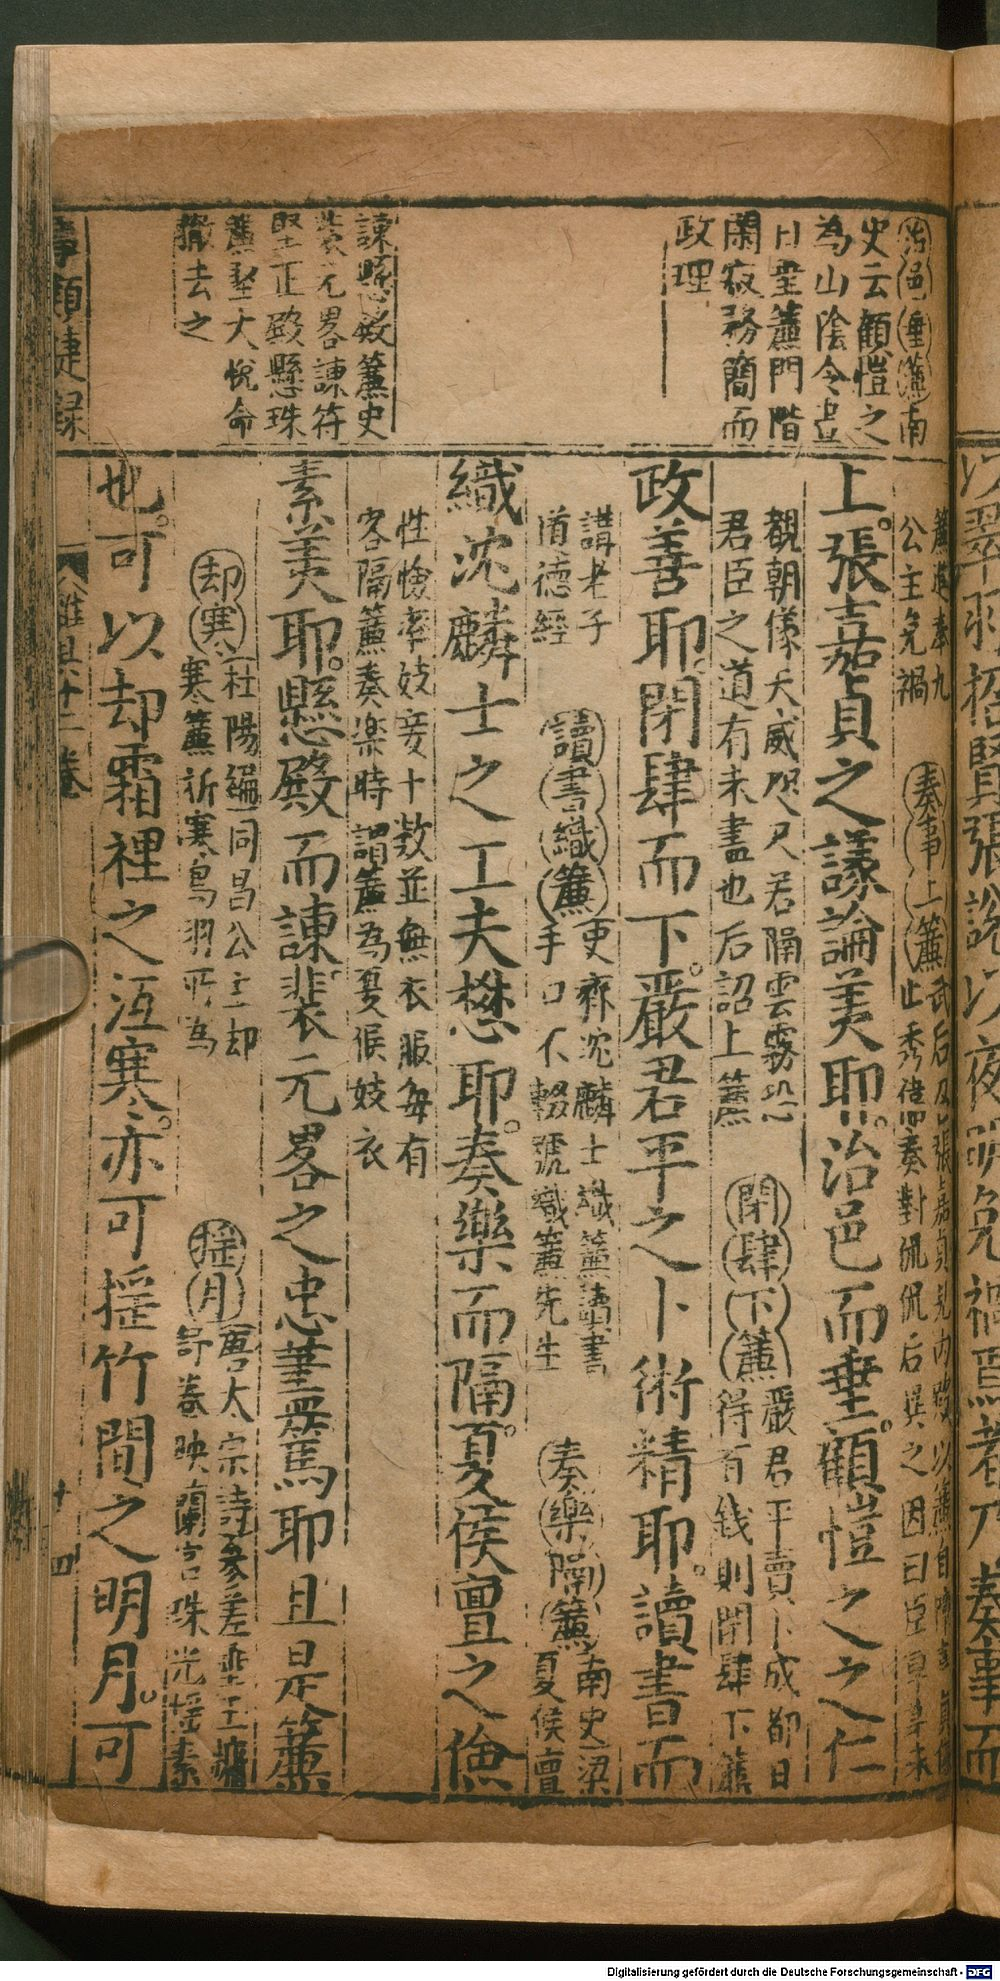 治邑垂簾南
史云顧愷之
為山陰令晝
日垂簾門階
閑寂務簡而
政理
諫懸殿簾史
裴元畧諫符
堅正殿懸珠
簾堅大悅命
撤去之
公主免禍
奏事上簾武后及張嘉貞
上張嘉貞之議論美耶治邑而垂顧愷之之仁
觀朝儀天威咫尺若隔雲霧恐
君臣之道有未盡也后詔上簾
閉肆下簾嚴君平賣卜成都日
得百錢則閉肆下簾
政善耶閉肆而下嚴君平之卜術精耶讀書而
講老子
道德經
讀書織簾吏齊沈麟士織簾讀書
手口不輟號織簾先生
奏樂隔簾南史梁
夏候亶
織沈麟士之工夫懋耶奏樂而隔夏侯亶之儉
性儉率妓妾十數並無衣服每有
客隔簾奏樂時謂簾為夏候妓衣
素美耶懸殿而諫裴元畧之忠藎篤耶且是簾
却寒杜陽編同昌公主却
寒簾祈寒鳥羽所為
搖月唐太宗詩參差垂玉牖
舒卷映蘭宮珠光搖素
也可以却霜裡之沍寒亦可搖竹間之明月可
事類捷錄
八雜具十二卷
十四
以翠羽招賢張說以夜明免禍焉者乃奏事而
Digitalisierung gefördert durch die Deutsche Forschungsgemeinschaft - DFG